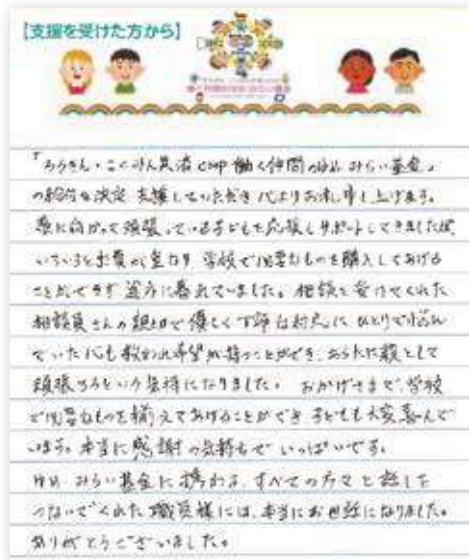 【支援を受けた方から】
「ろうきん・こくみん共済 coop 働く仲間のゆめ・みらい基金」
の給付を決定 支援していただき 心よりお礼申し上げます。
夢に向かって頑張っている子どもを応援しサポートしてきましたが、
いろいろと出費が重なり 学校で必要なものを購入してあげる
ことができず 途方に暮れていました。相談を受けてくれた
相談員さんの親切で優しく丁寧な対応に ひとりで悩ん
でいた心も救われ希望が持つことができ、あらたに親として
頑張ろうという気持になりました。 おかげさまで、学校
で必要なものを揃えてあげることができ 子どもも大変喜んで
います。本当に感謝の気持ちで いっぱいです。
ゆめ・みらい基金に携わる、すべての方々と 話しを
つないでくれた職員様には、本当にお世話になりました。
ありがとうございました。